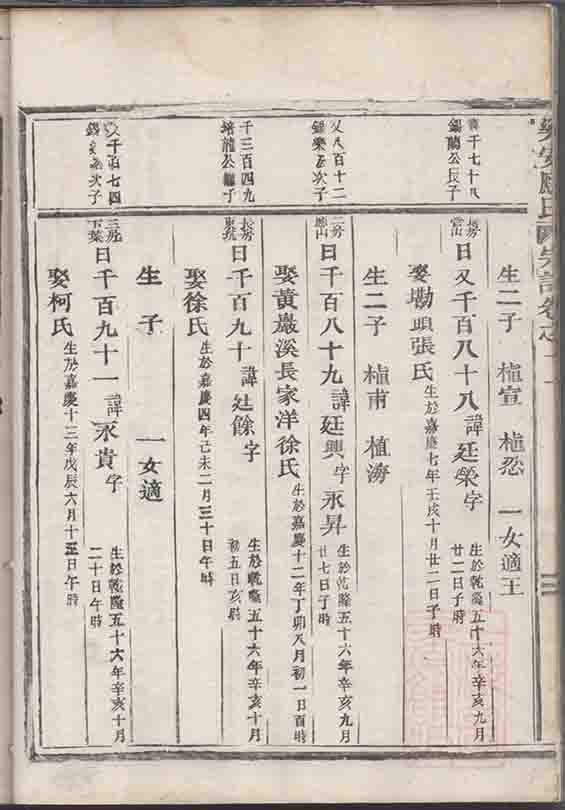 應氏宗譜卷之十
生二子 植宣 植 一女適王
千七十八
錫蘭公長子
房
日又千百八十八 諱廷榮字
生於乾隆五十六年辛亥九月
廿二日子時
娶墈頭張氏 生於嘉慶七年壬戌十月廿二日子時
生二子 植甫 植海
又八百十二
錫樂公次子
二房
日千百八十九 諱廷興字永昇
生於乾隆五十六年辛亥九月
廿七日子時
娶黃巖溪長家洋徐氏 生於嘉慶十二年丁卯八月初一日酉時
千三百四九
培龍公繼子
長房
日千百九十 諱廷餘字
生於乾隆五十六年辛亥十月
初五日亥時
娶徐氏 生於嘉慶四年己未二月三十日午時
生子 一女適
又千百七四
錫公次子
三房
下葉
日千百九十一 諱永貴字
生於乾隆五十六年辛亥十月
二十日午時
娶柯氏 生於嘉慶十三年戊辰六月十五日午時